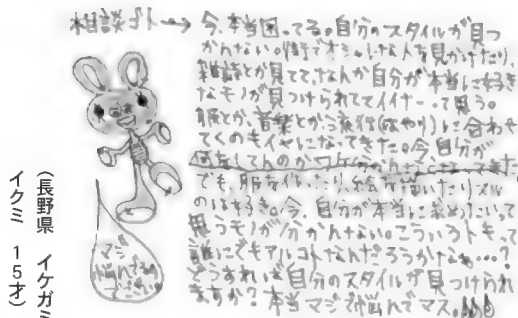 相談ゴト→
今、本当困ってる。自分のスタイルが見つ
かんない。街でオシャレな人を見かけたり、
雑誌とか見てて、なんか自分が本当に好き
なモノが見つけられててイイナーって思う。
服とか、音楽とか、流行(はやり)に合わせ
てくのもイヤになってきた。今、自分が
何をしてんのかワケ
でも、服を作ったり、絵を描いたりスル
のは好き。今、自分が本当に求めたいって
思うモノが分かんない。こういうトキって
誰にでもアルコトなんだろうかなぁ…?
どうすれば自分のスタイルが見つけられ
ますか?本当マジで悩んでマス。
マジ
悩んでるの
(長野県 イケガミ
イクミ 15才)